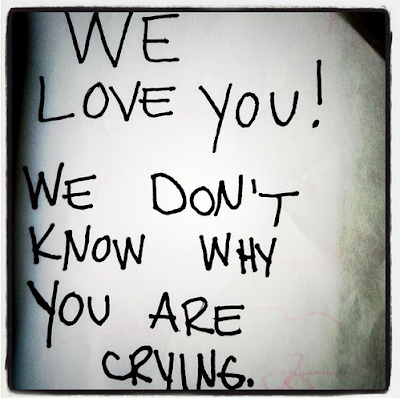 WE
LOVE YOU!
WE DON'T
KNOW WHY
YOU ARE
CRYING.